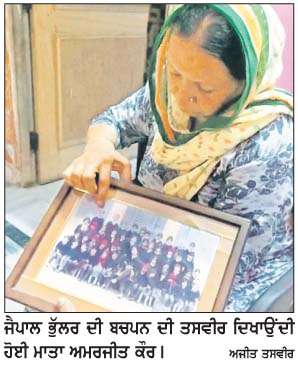 ਜੈਪਾਲ ਭੁੱਲਰ ਦੀ ਬਚਪਨ ਦੀ ਤਸਵੀਰ ਦਿਖਾਉਂਦੀ
ਹੋਈ ਮਾਤਾ ਅਮਰਜੀਤ ਕੌਰ। ਅਜੀਤ ਤਸਵੀਰ